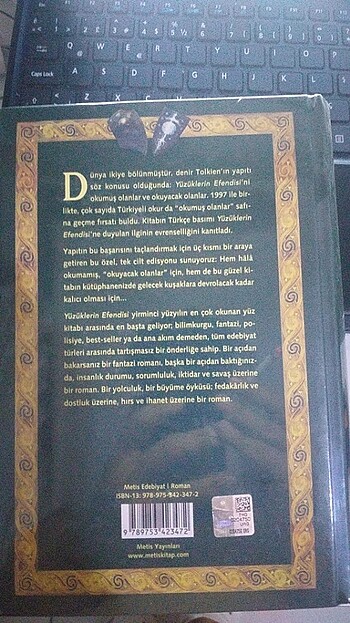 Caps Lock
Q W E R T Y U I O
A S D F G H J K L
Z X C V
Dünya ikiye bölünmüştür, denir Tolkien'ın yapıtı
söz konusu olduğunda: Yüzüklerin Efendisi'ni
okumuş olanlar ve okuyacak olanlar. 1997 ile bir-
likte, çok sayıda Türkiyeli okur da "okumuş olanlar" safı-
na geçme fırsatı buldu. Kitabın Türkçe basımı Yüzüklerin
Efendisi'ne duyulan ilginin evrenselliğini kanıtladı.
Yapıtın bu başarısını taçlandırmak için üç kısmı bir araya
getiren bu özel, tek cilt edisyonu sunuyoruz: Hem hâlâ
okumamış, "okuyacak olanlar" için, hem de bu güzel ki-
tabın kütüphanenizde gelecek kuşaklara devrolacak kadar
kalıcı olması için...
Yüzüklerin Efendisi yirminci yüzyılın en çok okunan yüz
kitabı arasında en başta geliyor; bilimkurgu, fantazi, po-
lisiye, best-seller ya da ana akım demeden, tüm edebiyat
türleri arasında tartışmasız bir önderliğe sahip. Bir açıdan
bakarsanız bir fantazi romanı, başka bir açıdan baktığınız-
da, insanlık durumu, sorumluluk, iktidar ve savaş üzerine
bir roman. Bir yolculuk, bir büyüme öyküsü; fedakârlık ve
dostluk üzerine, hırs ve ihanet üzerine bir roman.
Metis Edebiyat | Roman
ISBN-13: 978-975-342-347-2
9 789753 423472
Metis Yayınları
www.metiskitap.com